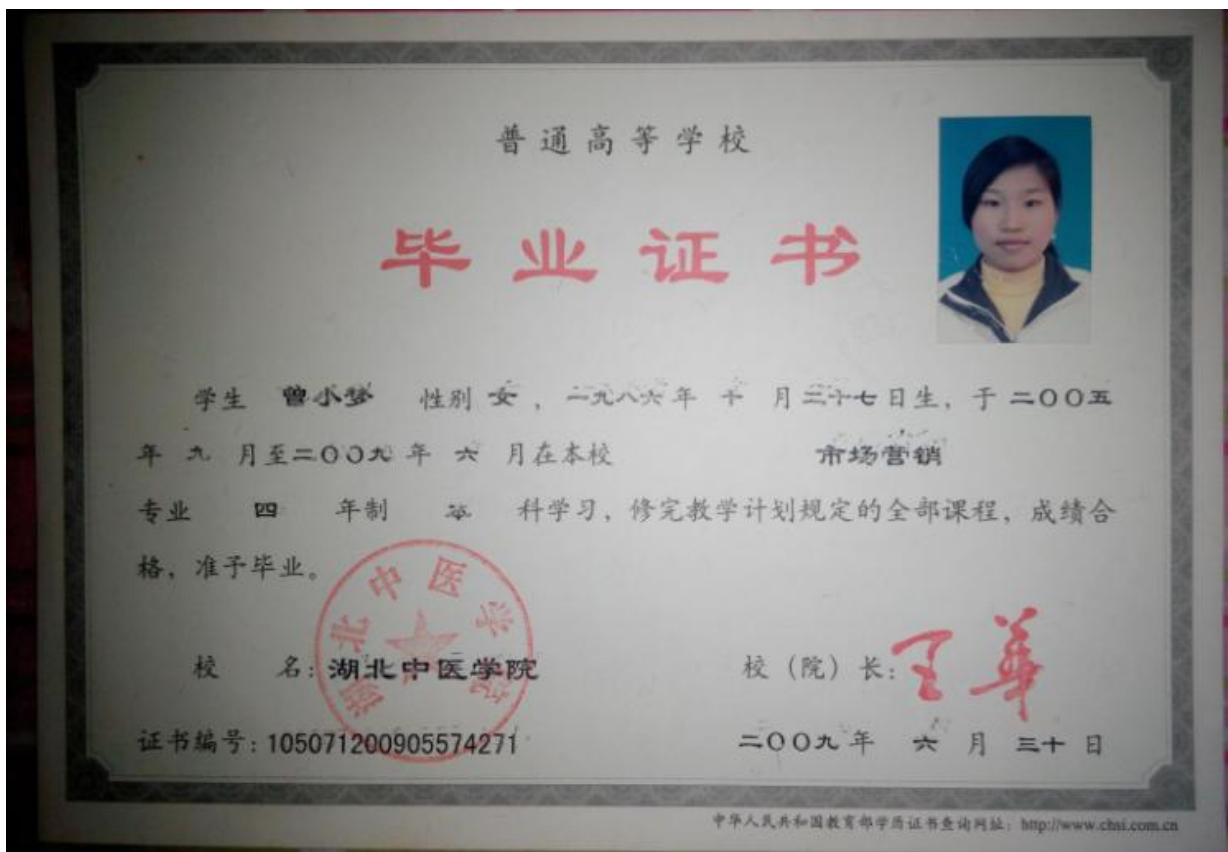 普通高等学校
毕业证书
学生 曾小梦 性别 女，一九八六年 十 月二十七日生，于二〇〇五
年 九 月至二〇〇九年 六 月在本校 市场营销
专业 四 年制 本 科学习，修完教学计划规定的全部课程，成绩合
格，准予毕业。
湖北中医学院
校 名：湖北中医学院
校（院）长：王华
证书编号：105071200905574271
二〇〇九年 六 月 三十 日
中华人民共和国教育部学历证书查询网址：http://www.chsi.com.cn